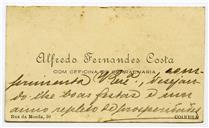 Alfredo Fernandes Costa
COM OFFICINA DE ENCADERNARIA com-
primenta V. Rev.ª desejan-
do lhe boas festas e um
anno repleto de prosperidades
Rua da Moeda, 50 COIMBRA